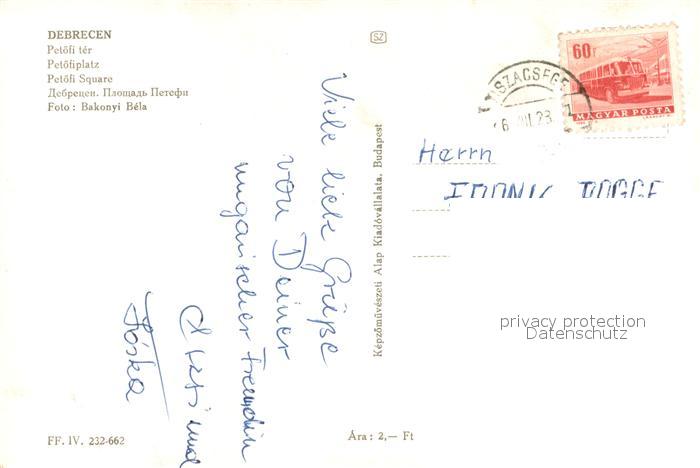 DEBRECEN
Petőfi tér
Petőfiplatz
Petőfi Square
Дебрецен. Площадь Петефи
Foto : Bakonyi Béla
SZ
60f
MAGYAR POSTA
Viele liebe Grüße
von Deiner
ungarischer Freundin
und
Jóska
Képzőművészeti Alap Kiadóvállalata, Budapest
Herrn
privacy protection
Datenschutz
FF. IV. 232-662
Ára : 2,— Ft